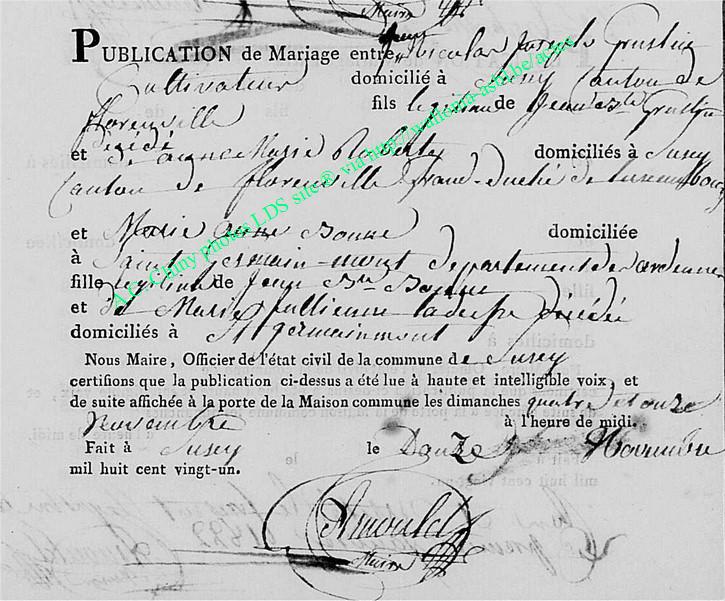 Maire
PUBLICATION de Mariage entre Nicolas Joseph
Cultivateur domicilié à Suxy Canton de
florenville fils légitime de Jean
décédé
et d Marie domiciliés à Suxy
Canton de florenville Grand-duché de Luxembourg
et Marie Anne Bonne domiciliée
à Saint germain-mont département des ardennes
fille légitime de Jean Bte Bonne
et d Marie décédée
domiciliés à St germainmont
Nous Maire, Officier de l'état civil de la commune de Suxey
certifions que la publication ci-dessus a été lue à haute et intelligible voix, et
de suite affichée à la porte de la Maison commune les dimanches quatre et onze
Novembre à l'heure de midi.
Fait à Suxey le Douze Novembre
mil huit cent vingt-un.
Arnould
Maire
A.E. Chiny photos LDS site® via http://wallonia-asbl.be/actes